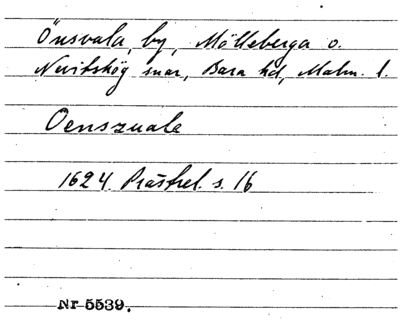 Önsvala, by, Mölleberga o.
Nevitshög snar, Bara hd, Malm. l.
Oenszuale
1624 Prästrel. s. 16
Nr 5539.